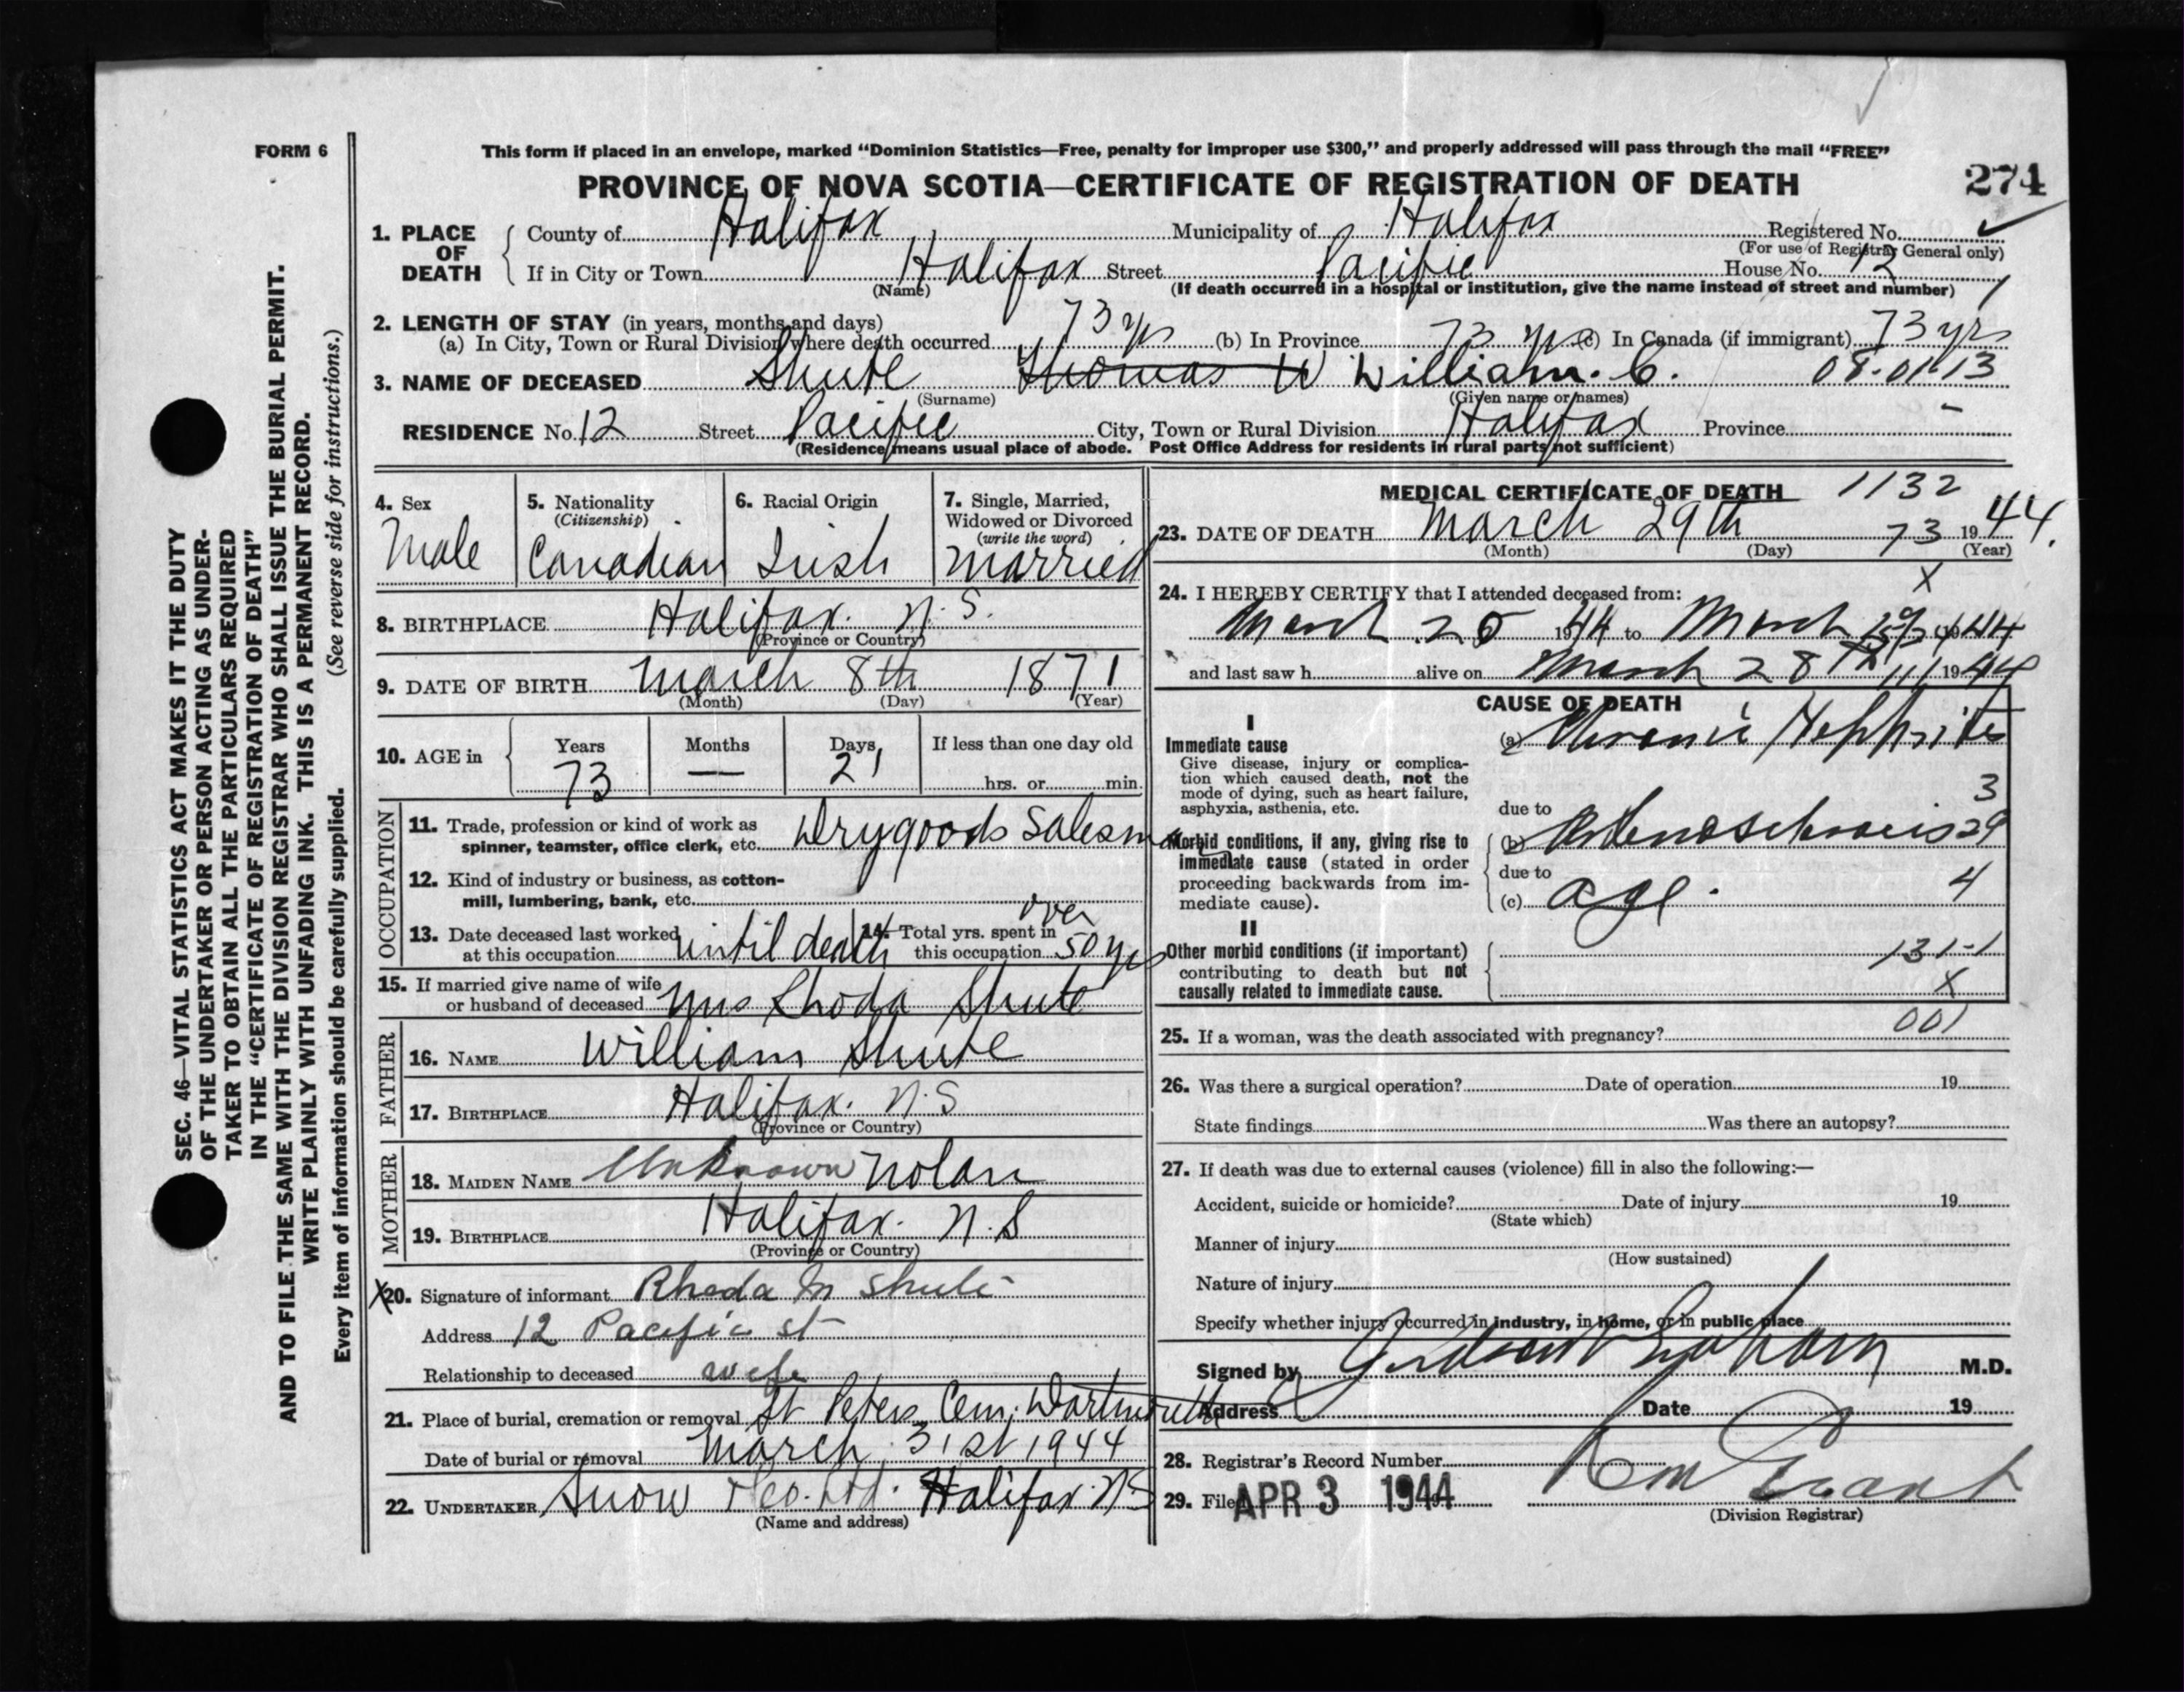 FORM 6
This form if placed in an envelope, marked “Dominion Statistics—Free, penalty for improper use $300,” and properly addressed will pass through the mail “FREE”
PROVINCE OF NOVA SCOTIA—CERTIFICATE OF REGISTRATION OF DEATH
274
SEC. 46—VITAL STATISTICS ACT MAKES IT THE DUTY
OF THE UNDERTAKER OR PERSON ACTING AS UNDER-
TAKER TO OBTAIN ALL THE PARTICULARS REQUIRED
IN THE “CERTIFICATE OF REGISTRATION OF DEATH”
AND TO FILE THE SAME WITH THE DIVISION REGISTRAR WHO SHALL ISSUE THE BURIAL PERMIT.
WRITE PLAINLY WITH UNFADING INK. THIS IS A PERMANENT RECORD.
(See reverse side for instructions.)
Every item of information should be carefully supplied.
1. PLACE OF DEATH
County of Halifax Municipality of Halifax Registered No.
(For use of Registrar General only)
If in City or Town Halifax Street Pacific House No. 12
(Name) (If death occurred in a hospital or institution, give the name instead of street and number) 1
2. LENGTH OF STAY (in years, months and days)
(a) In City, Town or Rural Division where death occurred 73 yrs (b) In Province 73 yrs (c) In Canada (if immigrant) 73 yrs
3. NAME OF DECEASED Shute Thomas W William. C. 08.01.13
(Surname) (Given name or names)
RESIDENCE No. 12 Street Pacific City, Town or Rural Division Halifax Province
(Residence means usual place of abode. Post Office Address for residents in rural parts not sufficient)
4. Sex
Male
5. Nationality
(Citizenship)
Canadian
6. Racial Origin
Irish
7. Single, Married,
Widowed or Divorced
(write the word)
Married
8. BIRTHPLACE Halifax. N.S.
(Province or Country)
9. DATE OF BIRTH March 8th 1871
(Month) (Day) (Year)
10. AGE in
Years Months Days If less than one day old
73 — 21 hrs. or min.
OCCUPATION
11. Trade, profession or kind of work as
spinner, teamster, office clerk, etc. Drygoods Salesman
12. Kind of industry or business, as cotton-
mill, lumbering, bank, etc.
13. Date deceased last worked
at this occupation until death
14. Total yrs. spent in over
this occupation 50 yrs
15. If married give name of wife
or husband of deceased Mrs Rhoda Shute
FATHER
16. NAME William Shute
17. BIRTHPLACE Halifax. N.S
(Province or Country)
MOTHER
18. MAIDEN NAME Unknown Nolan
19. BIRTHPLACE Halifax. N.S
(Province or Country)
X 20. Signature of informant Rhoda M Shute
Address 12 Pacific st
Relationship to deceased wife
21. Place of burial, cremation or removal St Peters Cem. Dartmouth
Date of burial or removal March 31st 1944
22. UNDERTAKER Snow & Co. Ltd. Halifax N.S
(Name and address)
MEDICAL CERTIFICATE OF DEATH 1132
23. DATE OF DEATH March 29th 73 1944.
(Month) (Day) (Year)
X
24. I HEREBY CERTIFY that I attended deceased from:
March 1944 to March 1944
and last saw h alive on March 28 1944
CAUSE OF DEATH
I
Immediate cause
Give disease, injury or complica-
tion which caused death, not the
mode of dying, such as heart failure,
asphyxia, asthenia, etc.
(a) Chronic Nephritis
3
due to
Morbid conditions, if any, giving rise to
immediate cause (stated in order
proceeding backwards from im-
mediate cause).
(b) Arteriosclerosis 29
due to
(c) age. 4
II
Other morbid conditions (if important)
contributing to death but not
causally related to immediate cause.
131-1
X
25. If a woman, was the death associated with pregnancy? 001
26. Was there a surgical operation? Date of operation 19
State findings Was there an autopsy?
27. If death was due to external causes (violence) fill in also the following:—
Accident, suicide or homicide? Date of injury 19
(State which)
Manner of injury
(How sustained)
Nature of injury
Specify whether injury occurred in industry, in home, or in public place
Signed by Graham M.D.
Address Date 19
28. Registrar's Record Number
29. Filed APR 3 1944
Grant
(Division Registrar)